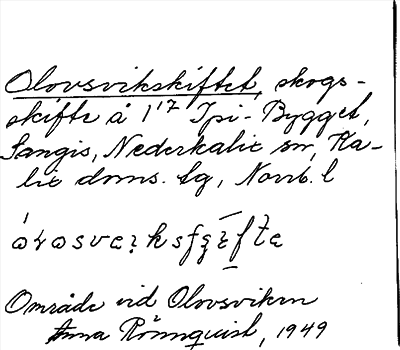 Olovsvikskiftet, skogs-
skifte å 1¹⁷ Ipi-Bygget,
Sangis, Nederkalix sn, Ka-
lix doms. tg, Norrb. l
Område vid Olovsviken
Anna Rönnquist, 1949